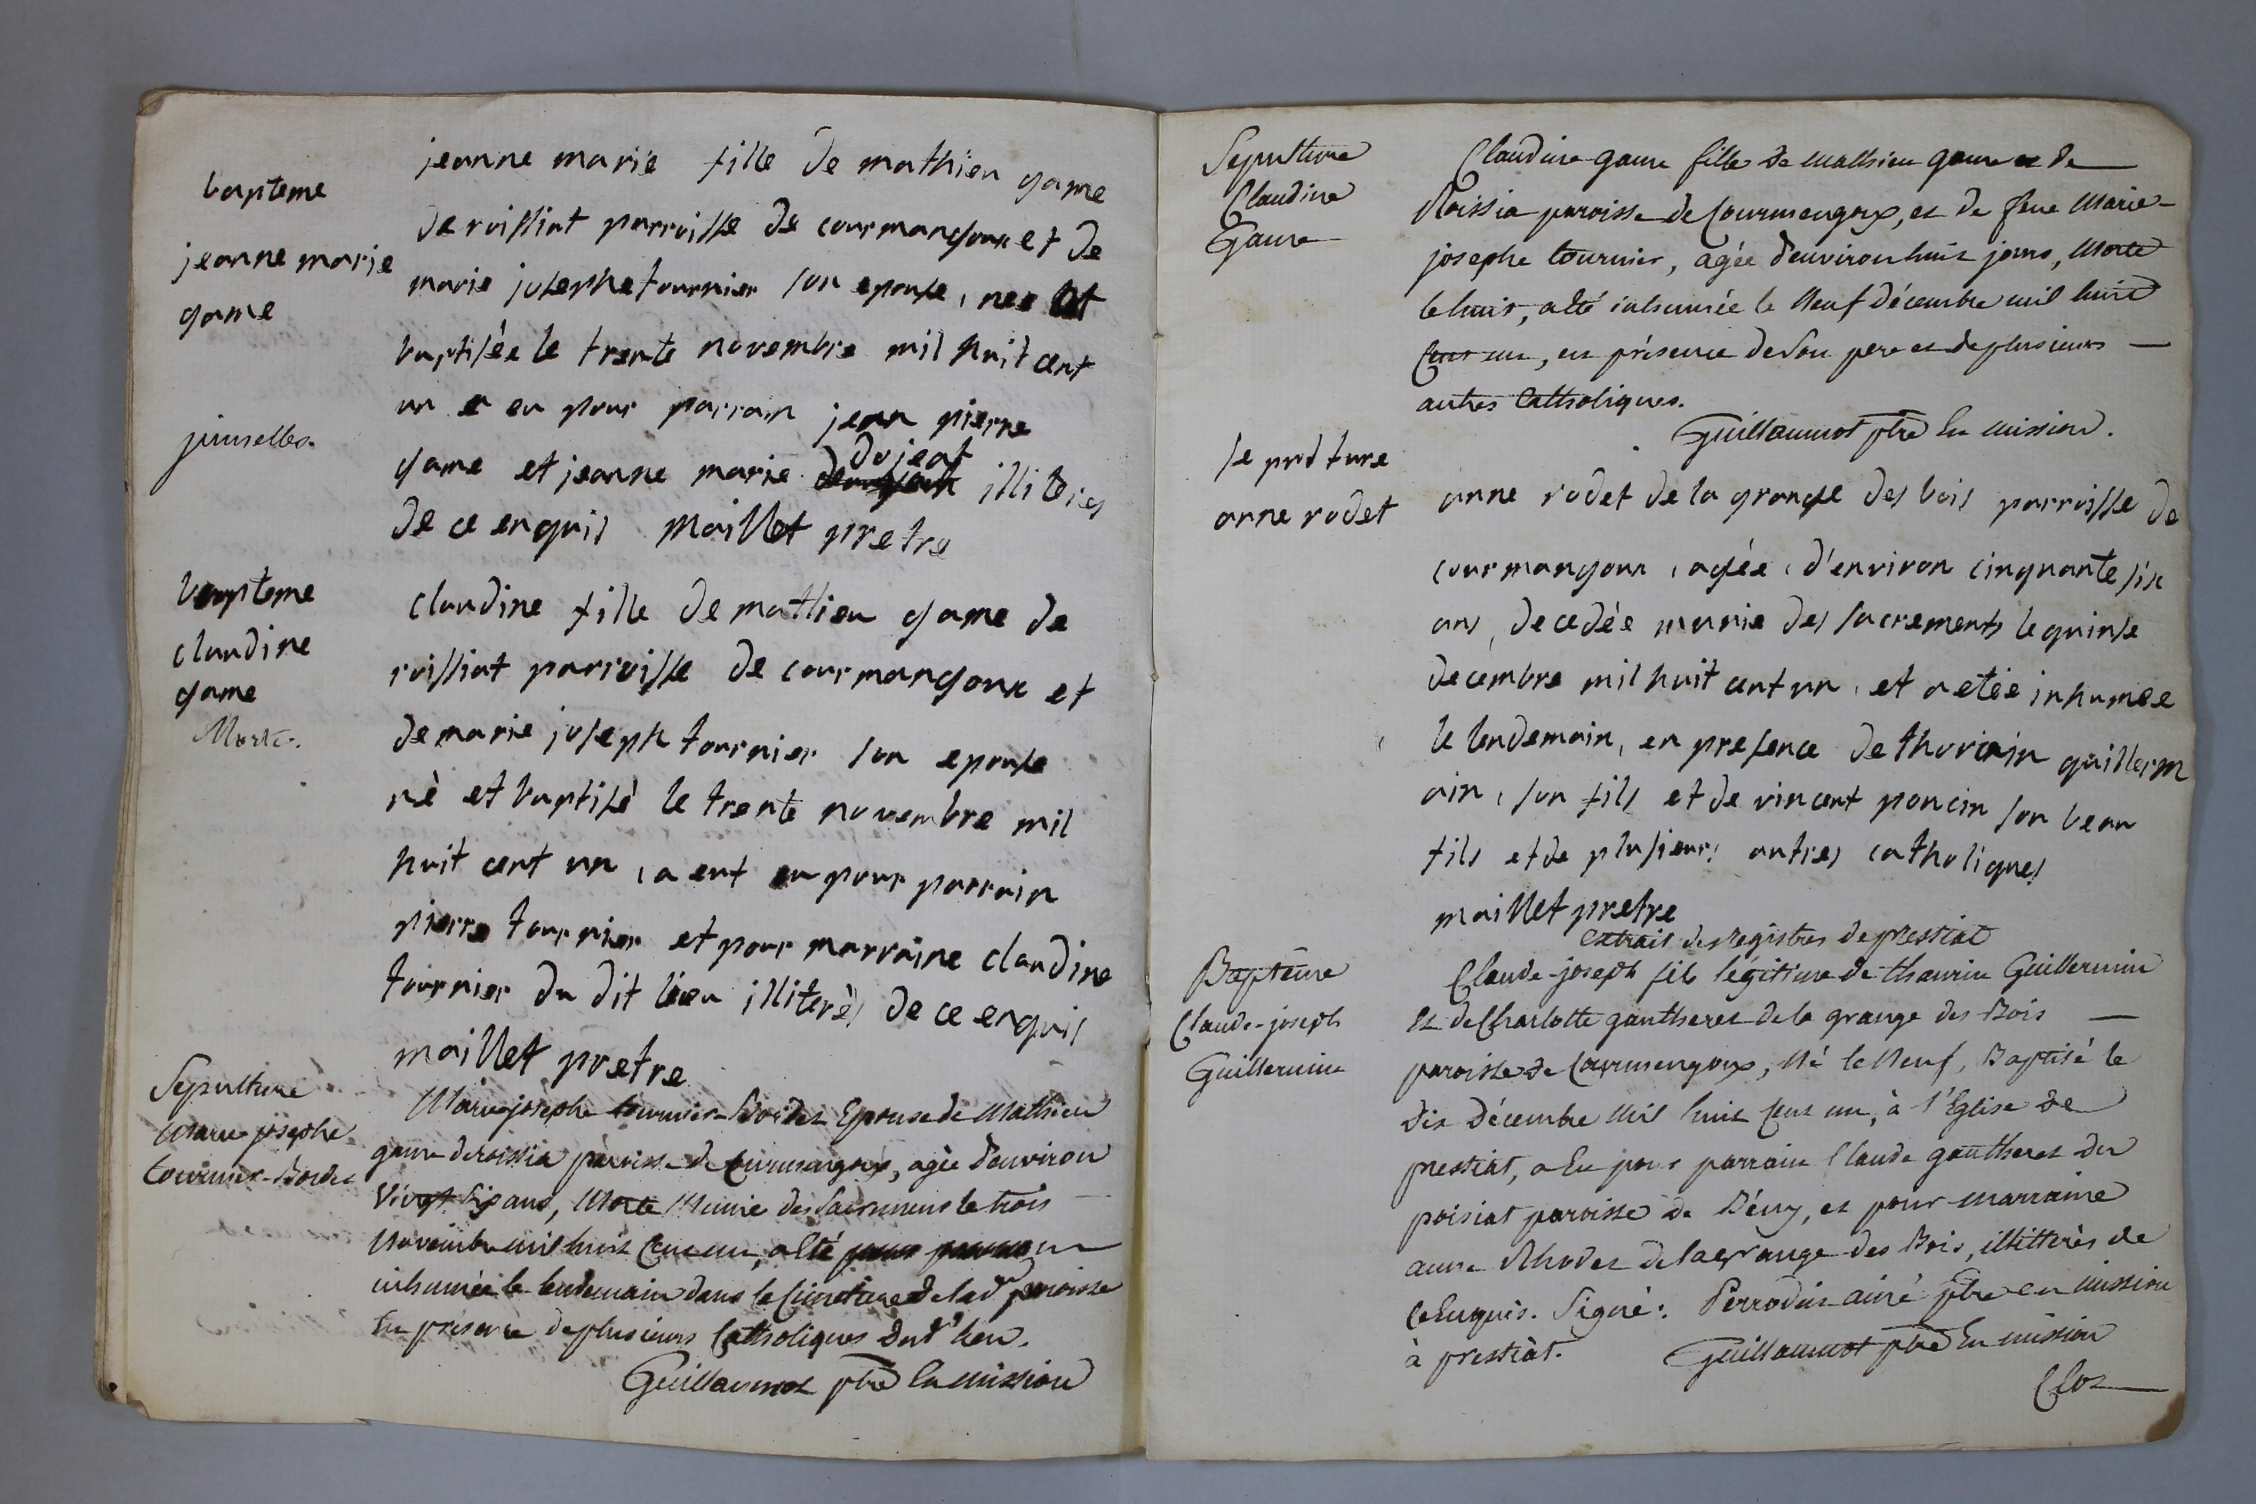 bapteme
jeanne marie
game
jumelles.
jeanne marie fille de mathieu game
de roissiat parroisse de courmangoux et de
marie josephe tournier son epouse, nee et
baptisée le trente novembre mil huit cent
un a eu pour parrain jean pierre
dujeat
game et jeanne marie illiteres
de ce enquis maillet pretre
bapteme
claudine
game
Morte.
claudine fille de mathieu game de
roissiat parroisse de courmangoux et
de marie joseph tournier son epouse
nè et baptisè le trente novembre mil
huit cent un, a eut eu pour parrain
pierre tournier et pour marraine claudine
tournier du dit lieu illiterès de ce enquis
maillet pretre
Sepulture
Marie josephe
tournier-Bordet
Marie josephe tournier-Bordet Epouse de Mathieu
game de roissia paroisse de Courmangoux, agée d'environ
Vingt Six ans, Morte Munie des Sacremens le trois
Novembre mil huit Cent un, a Eté
inhumée le lendemain dans le Cimetiere de lad.e paroisse
En présence de plusieurs Catholiques dud.t lieu.
Guillaumot ptre En Mission
Sepulture
Claudine
Game
Claudine game fille de Mathieu game et de
Roissia paroisse de Courmengoux, et de feue Marie-
josephe tournier, agée d'environ huit jours, Morte
le huit, a Eté inhumée le Neuf Décembre mil huit
Cent un, en présence de Son pere et de plusieurs
autres Catholiques.
Guillaumot ptre En Mission.
sepulture
anne rodet
anne rodet de la grange des bois parroisse de
courmangoux, agée, d'environ cinquante six
ans, decedèe munie des sacrements le quinse
decembre mil huit cent un, et a etée inhumee
le lendemain, en presence de thorin guillerm
ain, son fils et de vincent poncin son beau
fils et de plusieurs autres catholiques
maillet pretre
Extrait des Régistres de prestiat
Baptême
Claude-joseph
Guillermin
Claude-joseph fils légitime de thaurin Guillermin
Et de Charlotte gautheret de la grange des Bois
paroisse de Courmengoux, Né le Neuf, Baptisé le
Dix Décembre Mil huit Cent un, à l'Eglise de
prestiat, a Eu pour parrain Claude gautheret de
poisiat paroisse de Bény, et pour Marraine
anne Rhodet de la grange des Bois, illitterès de
ce Enquis. Signé: Perrodin ainé ptre en mission
à prestiàt. Guillaumot ptre En Mission
Clos